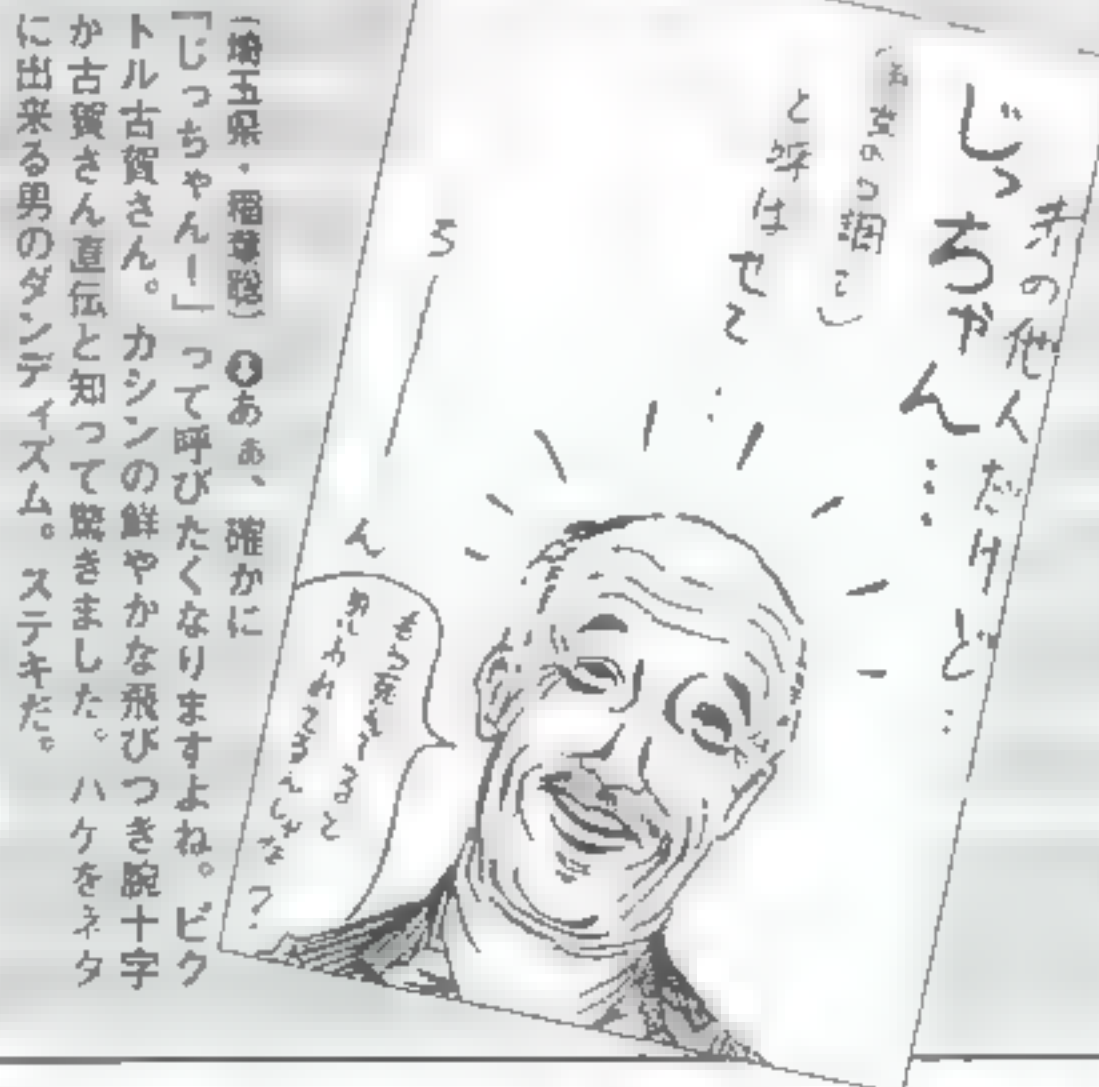 赤の他人だけど…
じっちゃん……
の口調で)
と呼ばせて…
うーん
(埼玉県・稲葉聡)あぁ、確かに
「じっちゃん!」って呼びたくなりますよね。ビク
トル古賀さん。カシンの鮮やかな飛びつき腕十字
か古賀さん直伝と知って驚きました。ハゲをネタ
に出来る男のダンディズム。ステキだ。